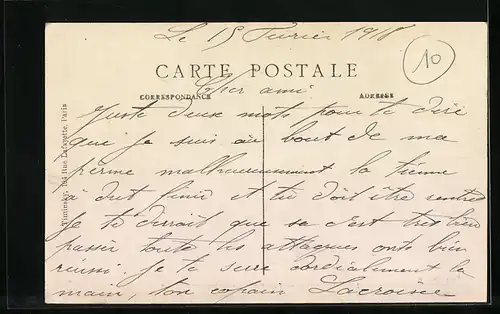 Le 15 Fevrier 1918
10
CARTE POSTALE
Cher ami
CORRESPONDANCE
ADRESSE
Juste deux mots pour te dire
que je suis au bout de ma
perme malheureusement la tienne
à dut finir et tu doit être rentré
Je te dirrait que sa c'est tres bien
passer toute les attaques onts bien
réussi. Je te serre cordialement la
main, ton copain Lacroixe
184 Rue Lafayette, Paris